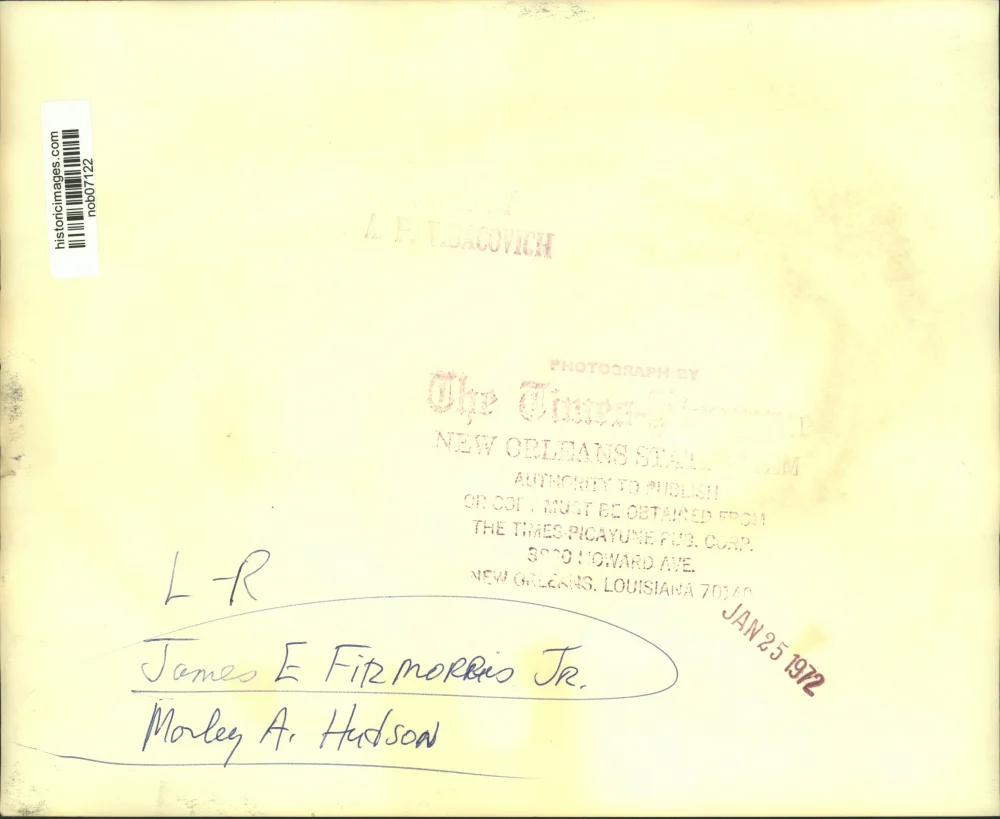 historicimages.com
nob07122
A. P. VIDACOVICH
PHOTOGRAPH BY
The Times-
NEW ORLEANS
AUTHORITY TO PUBLISH
OR COPY MUST BE OBTAINED FROM
THE TIMES-PICAYUNE PUB. CORP.
HOWARD AVE.
NEW ORLEANS, LOUISIANA
JAN 25 1972
L-R
James E FitzmoRRis JR.
Morley A. Hudson